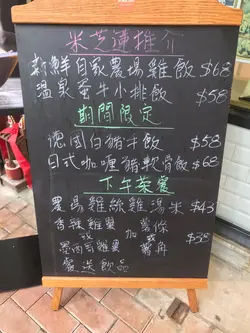 米芝連推介
新鮮自家農場雞飯 $68
溫泉蛋牛小排飯 $58
期間限定
德國白豬手飯 $58
日式咖喱豬軟骨飯 $68
下午茶餐
農場雞絲雞湯米 $43
香辣雞翼 薯條
或 加 或 $38
墨西哥雞翼 薯角
餐送飲品